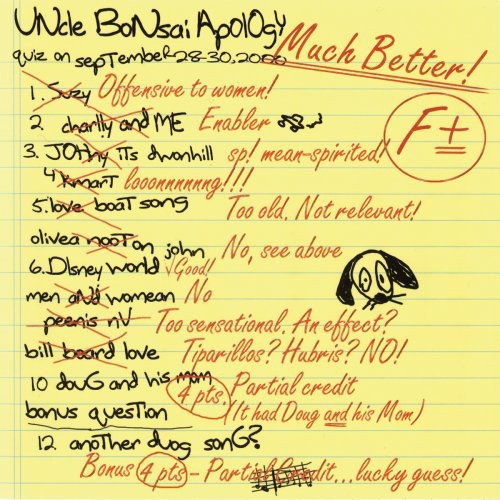 UNcle BoNsai ApolOgy
quiz on sepTembeR 28-30, 2000
Much Better!
F±
1. Suzy Offensive to women!
2 charlly and ME Enabler
3. JOhny iTs dwonhill sp! mean-spirited!
4 KmarT looonnnnnng!!!
5. love boaT song Too old. Not relevant!
olivea nooTon john No, see above
6. DIsney world √Good!
men aNd womean No
peenis nV Too sensational. An effect?
bill board love Tiparillos? Hubris? NO!
10 douG and his mom 4 pts. Partial credit
bonus quesTion (It had Doug and his Mom)
12. anoTher duog sonG?
Bonus 4 pts - Partial Credit...lucky guess!